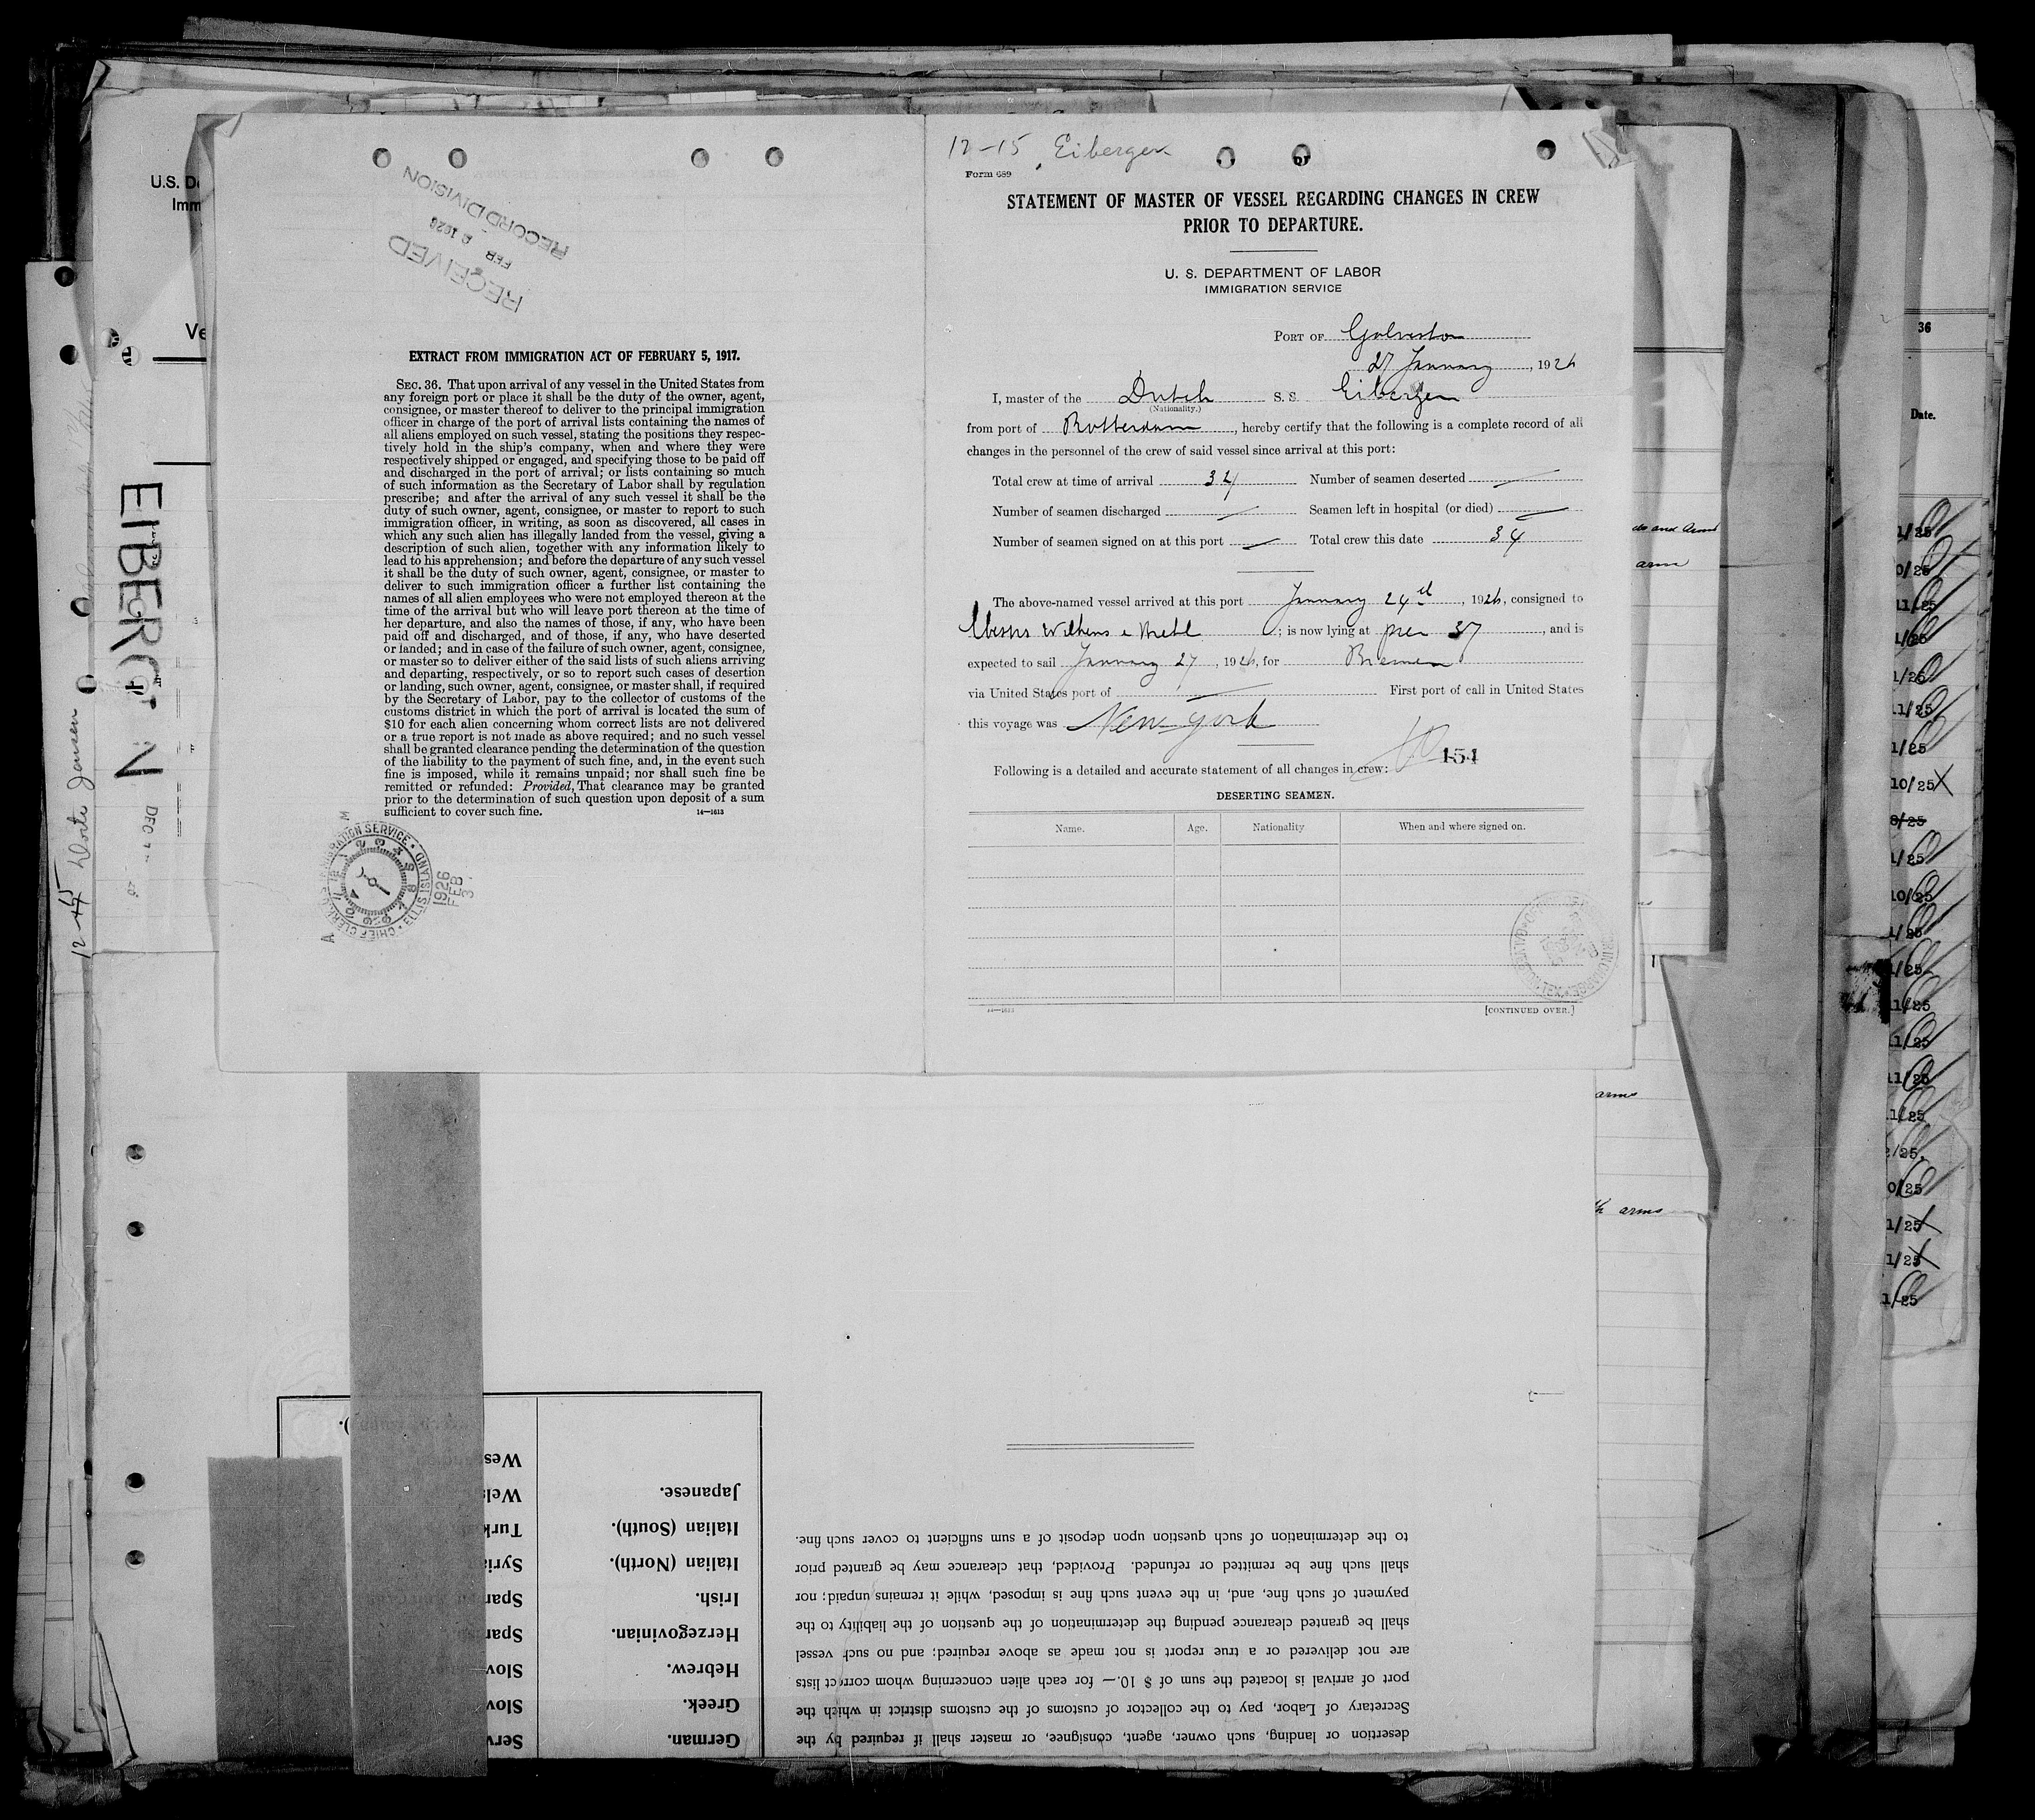 RECEIVED
FEB 2 1926
RECORD DIVISION
EXTRACT FROM IMMIGRATION ACT OF FEBRUARY 5, 1917.
SEC. 36. That upon arrival of any vessel in the United States from
any foreign port or place it shall be the duty of the owner, agent,
consignee, or master thereof to deliver to the principal immigration
officer in charge of the port of arrival lists containing the names of
all aliens employed on such vessel, stating the positions they respec-
tively hold in the ship's company, when and where they were
respectively shipped or engaged, and specifying those to be paid off
and discharged in the port of arrival; or lists containing so much
of such information as the Secretary of Labor shall by regulation
prescribe; and after the arrival of any such vessel it shall be the
duty of such owner, agent, consignee, or master to report to such
immigration officer, in writing, as soon as discovered, all cases in
which any such alien has illegally landed from the vessel, giving a
description of such alien, together with any information likely to
lead to his apprehension; and before the departure of any such vessel
it shall be the duty of such owner, agent, consignee, or master to
deliver to such immigration officer a further list containing the
names of all alien employees who were not employed thereon at the
time of the arrival but who will leave port thereon at the time of
her departure, and also the names of those, if any, who have been
paid off and discharged, and of those, if any, who have deserted
or landed; and in case of the failure of such owner, agent, consignee,
or master so to deliver either of the said lists of such aliens arriving
and departing, respectively, or so to report such cases of desertion
or landing, such owner, agent, consignee, or master shall, if required
by the Secretary of Labor, pay to the collector of customs of the
customs district in which the port of arrival is located the sum of
$10 for each alien concerning whom correct lists are not delivered
or a true report is not made as above required; and no such vessel
shall be granted clearance pending the determination of the question
of the liability to the payment of such fine, and, in the event such
fine is imposed, while it remains unpaid; nor shall such fine be
remitted or refunded: Provided, That clearance may be granted
prior to the determination of such question upon deposit of a sum
sufficient to cover such fine.
14—1613
CHIEF CLERK U.S. IMMIGRATION SERVICE ELLIS ISLAND
1926 FEB 3
12-15 Eibergen
Form 689
STATEMENT OF MASTER OF VESSEL REGARDING CHANGES IN CREW
PRIOR TO DEPARTURE.
U. S. DEPARTMENT OF LABOR
IMMIGRATION SERVICE
PORT OF Galveston
27 January, 1926
I, master of the Dutch S. S. Eibergen
(Nationality.)
from port of Rotterdam, hereby certify that the following is a complete record of all
changes in the personnel of the crew of said vessel since arrival at this port:
Total crew at time of arrival 34 Number of seamen deserted —
Number of seamen discharged — Seamen left in hospital (or died) —
Number of seamen signed on at this port — Total crew this date 34
The above-named vessel arrived at this port January 24th, 1926, consigned to
Messrs Wilkens & Biehl; is now lying at pier 37, and is
expected to sail January 27, 1926, for Bremen
via United States port of — First port of call in United States
this voyage was New York
154
Following is a detailed and accurate statement of all changes in crew:
DESERTING SEAMEN.
Name. Age. Nationality When and where signed on.
14—1613 [CONTINUED OVER.]
EIBERGEN
12-15 Dorte Jensen
DEC
U.S. D
Imm
Ve
36
Date.
ds and Arms
arm
arms
th arms
German.
Greek.
Hebrew.
Herzegovinian.
Irish.
Italian (North).
Italian (South).
Japanese.
desertion or landing, such owner, agent, consignee, or master shall if required by the
Secretary of Labor, pay to the collector of customs of the customs district in which the
port of arrival is located the sum of $ 10.— for each alien concerning whom correct lists
are not delivered or a true report is not made as above required; and no such vessel
shall be granted clearance pending the determination of the question of the liability to the
payment of such fine, and, in the event such fine is imposed, while it remains unpaid; nor
shall such fine be remitted or refunded. Provided, that clearance may be granted prior
to the determination of such question upon deposit of a sum sufficient to cover such fine.